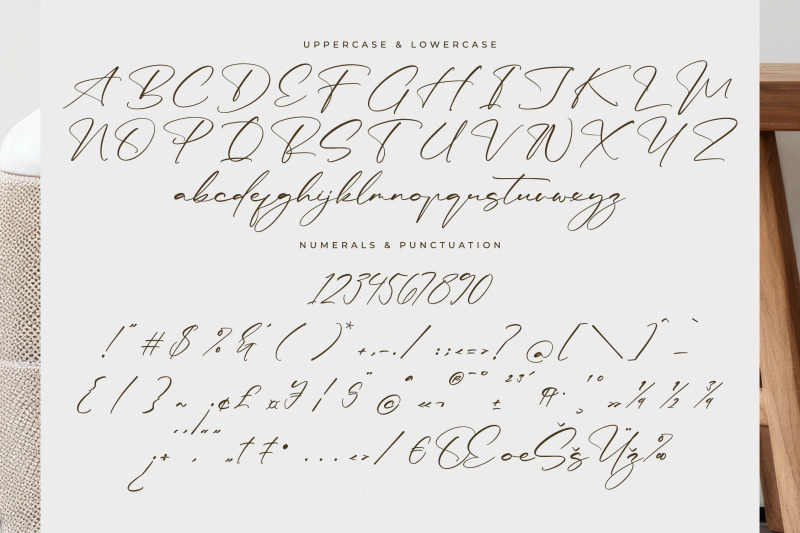 UPPERCASE & LOWERCASE
ABCDEFGHIJKLM
NOPQRSTUVWXYZ
abcdefghijklmnopqrstuvwxyz
NUMERALS & PUNCTUATION
1234567890
!"#$%&'()*+,-./:;<=>?@[\]^_`
{|}~¡¢£¤¥¦§¨©ª«¬®¯°±²³´¶·¸¹º»¼½¾
¿‘’‚“”„†‡•…‹›⁄€ŒœŠšŸž‰